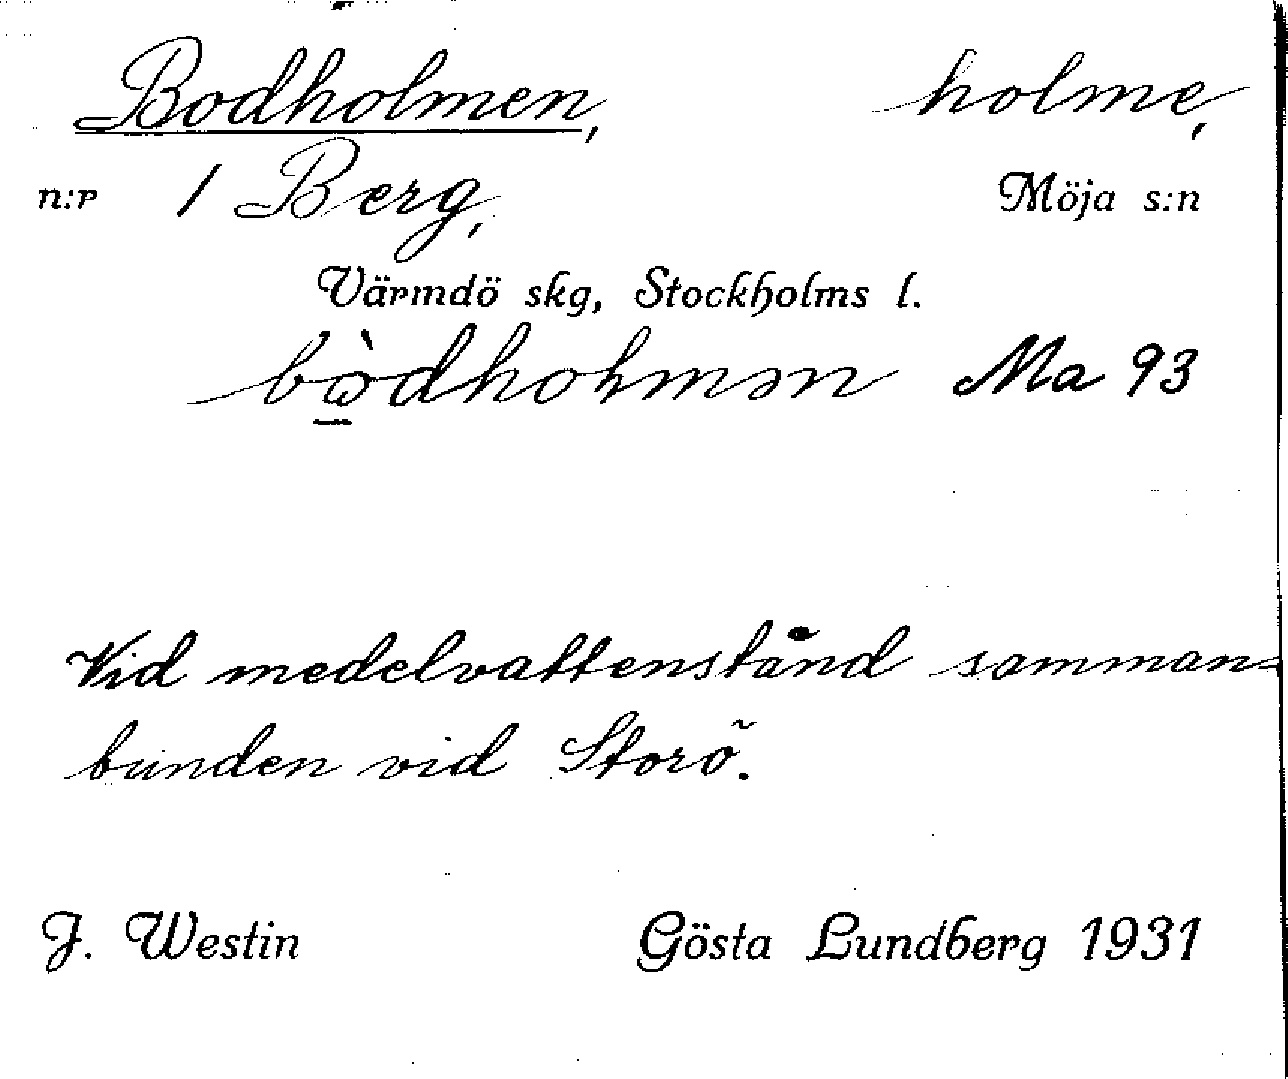 Bodholmen, holme,
n:r 1 Berg, Möja s:n
Värmdö skg, Stockholms l.
bòdholmən Ma 93
Vid medelvattenstånd samman-
bunden vid Storö.
J. Westin Gösta Lundberg 1931